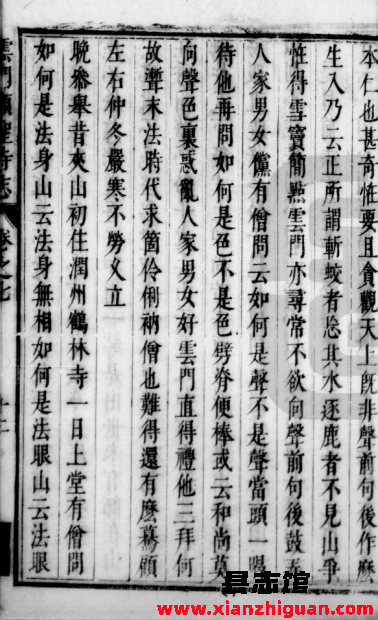 本仁也甚奇怪要且貪觀天上既非聲前句後作麽
生入乃云正所謂斬蛟者忘其水逐鹿者不見山爭
怪得雪竇簡點雲門亦尋常不欲向聲前句後鼓弄
人家男女儻有僧問云如何是聲不是聲當頭一喝
待他再問如何是色不是色劈脊便棒或云和尚莫
向聲色裏惑亂人家男女好雲門直得禮他三拜何
故澆末法時代求箇伶俐衲僧也難得還有麽驀顧
左右仲冬嚴寒不勞久立
晚參舉昔夾山初住潤州鶴林寺一日上堂有僧問
如何是法身山云法身無相如何是法眼山云法眼
雲門顯聖寺志 卷之七
县志馆
www.xianzhiguan.com